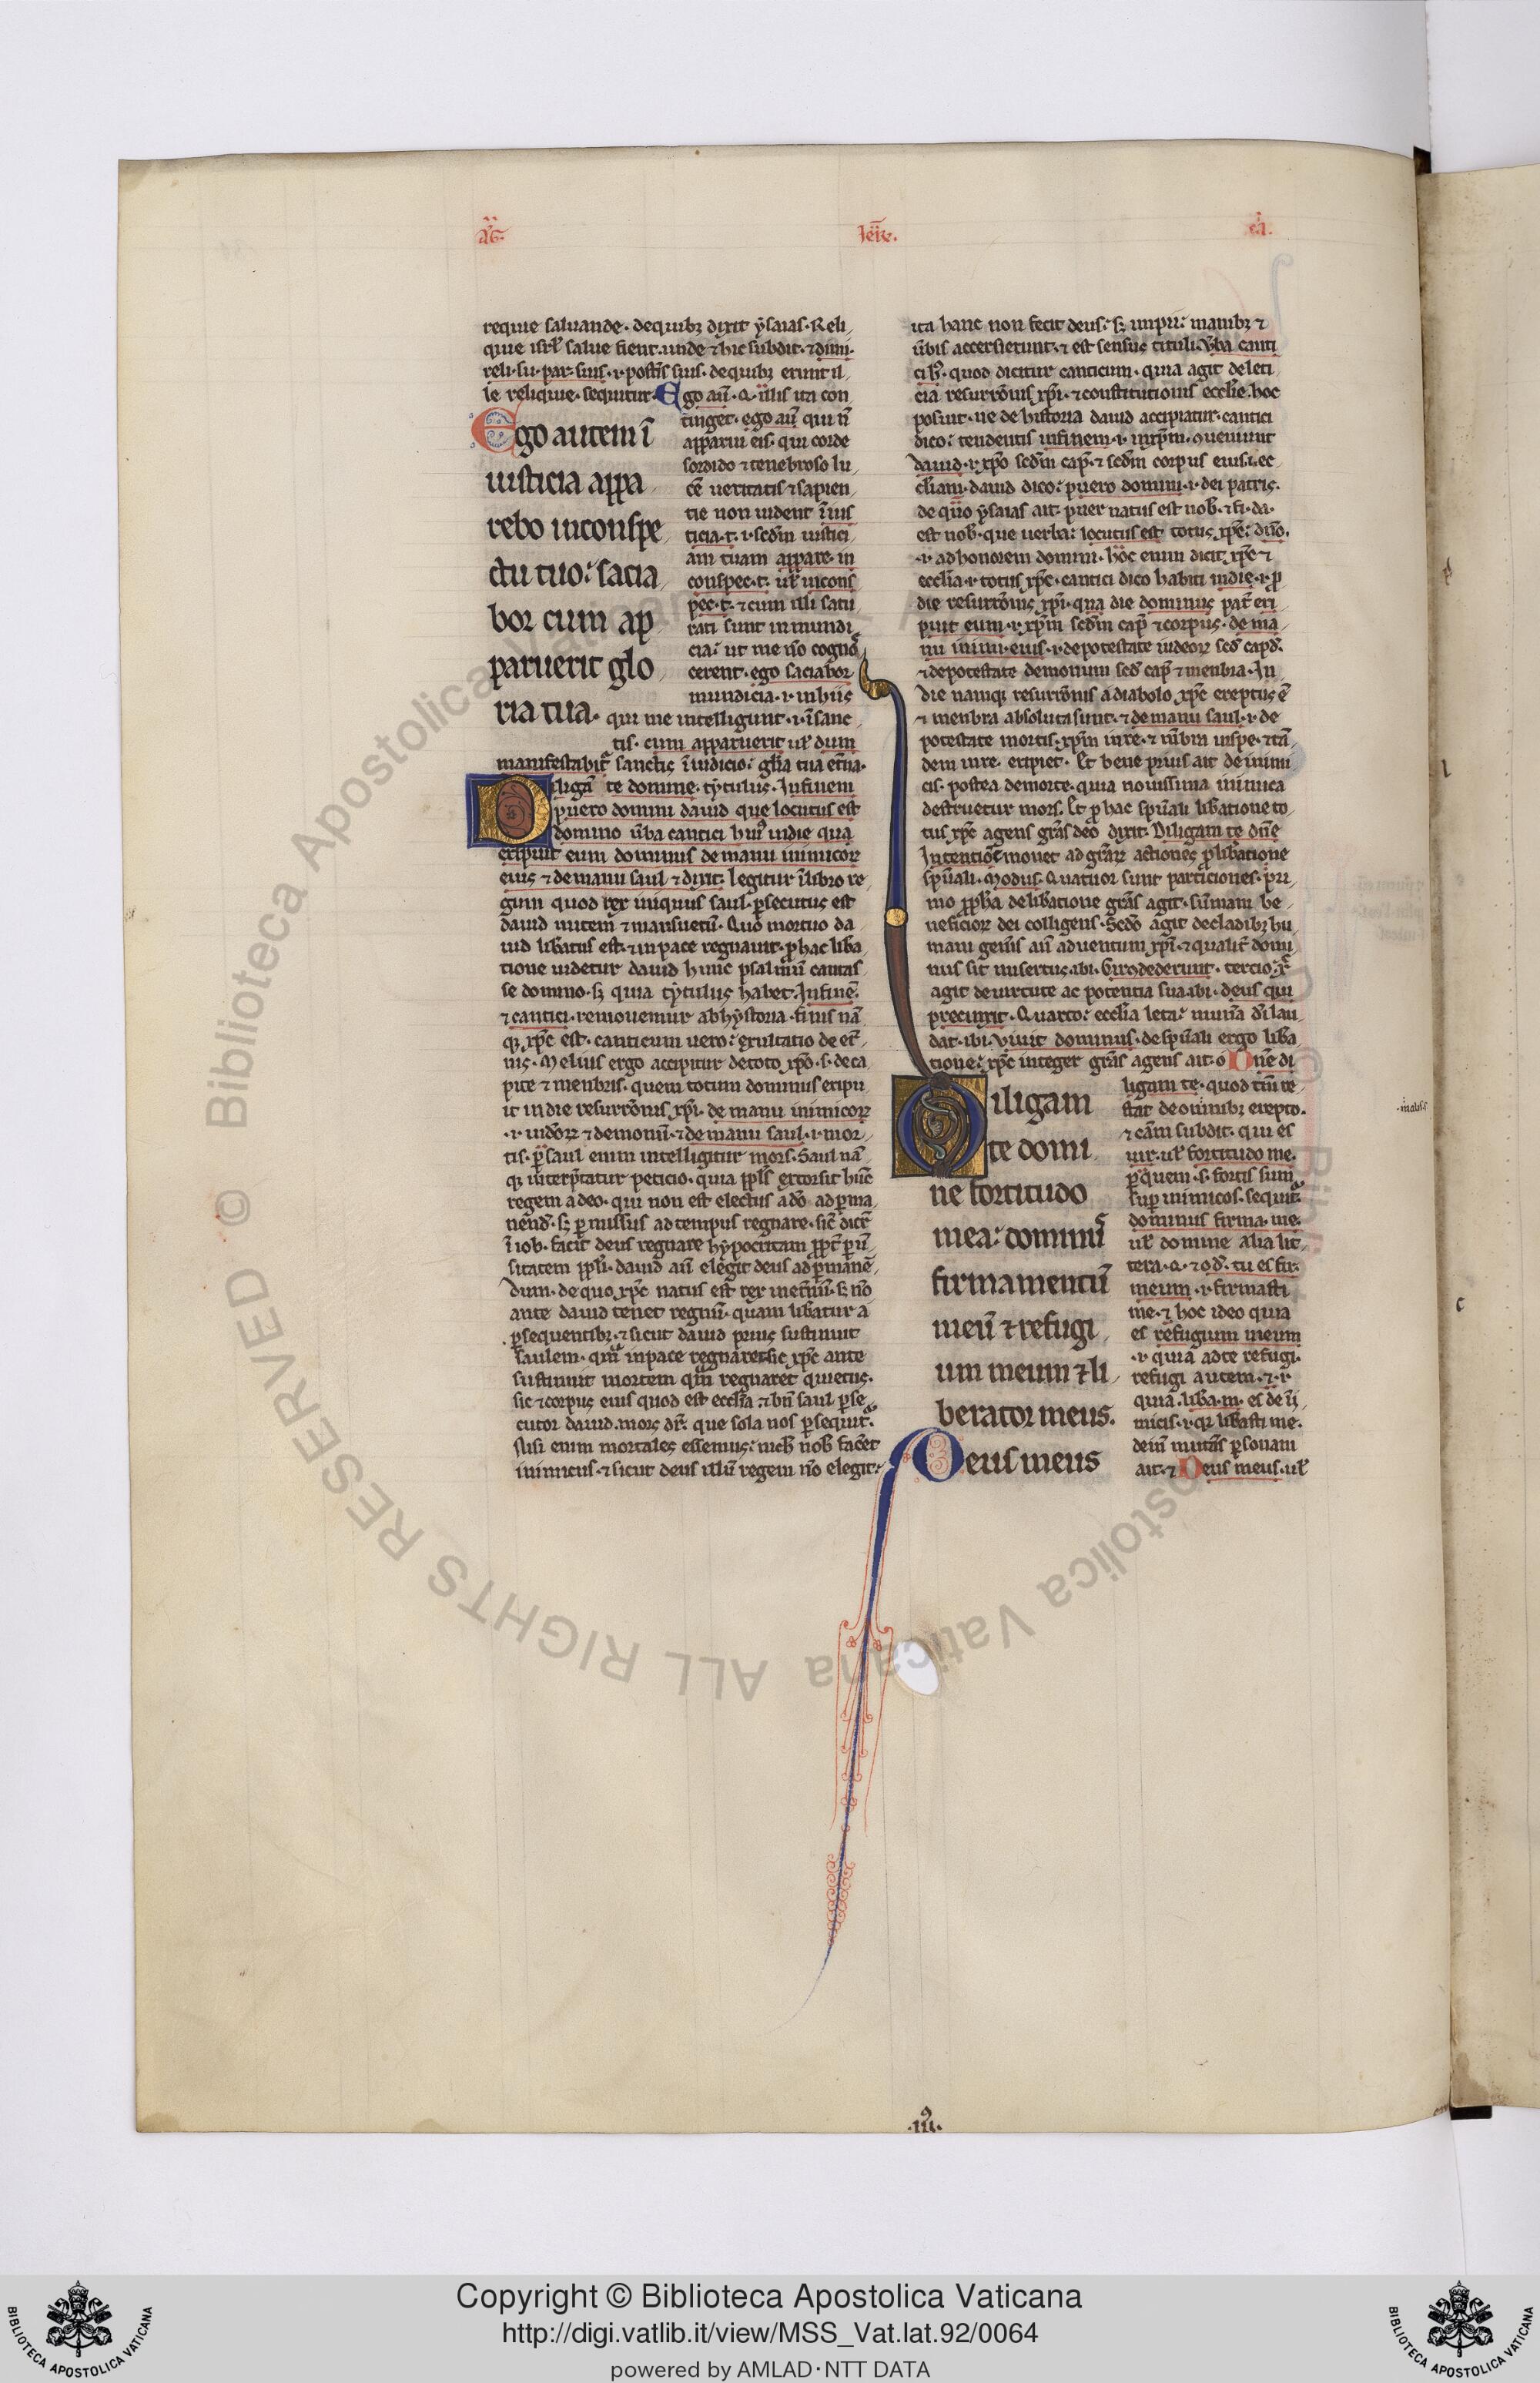 Aug. Ier̃. ca.
requie saluande· dequibꝫ dixit ysaias· Reli
quie isrl̃ salue fient· unde ⁊ hic subdit· ⁊ dimi·
reli· su· par· suis· .i. post̾is suis· dequibꝫ erunt il
le relique· sequitur· Ego aũ·
tinget· ego aũ qui ñ
apparui eis· qui corde
sordido ⁊ tenebroso lu
cẽ ueritatis ⁊ sapien
tie non uident ĩ ius
ticia· t· .i. scd̃m iustici
am tuam appare· in
conspec· t· ul̃ in cons
pec· t· ⁊ cum illi satu
rati sunt in mundi
cia: ut me nõ cogno
scerent· ego saciabor
mundicia· .i. in hiis
qui me intelligunt· .i. ĩ sanc
tis· cum apparuerit ul̃ dum
manifestabit̃ sanctis ĩ iudicio: gl̃ia tua et̾na·
Ego autem ĩ
iusticia appa
rebo in conspe
ctu tuo: sacia
bor cum ap
paruerit glo
ria tua·
Diligã te domine· tytulus· In finem
puero domini dauid que locutus est
domino ũba cantici hui᷒ in die qua
eripuit eum dominus de manu inimicoꝝ
eius ⁊ de manu saul ⁊ dixit· legitur ĩ libro re
gum quod rex iniquus saul· ꝑsecutus est
dauid mitem ⁊ mansuetũ· Quo mortuo da
uid lib̾atus est· ⁊ in pace regnauit· ꝓ hac lib̾a
tione uidetur dauid hunc psalmũ cantas
se domino· sꝫ quia tytulus habet· In finẽ·
⁊ cantici· remouemur ab hystoria· finis nã
qꝫ xp̃c est· canticum uero: exultatio de et̾
nis· Melius ergo accipitur de toto xp̃o· .s. de ca
pite ⁊ menbris· quem totum dominus eripu
it in die resurrõnis xp̃i· de manu inimicoꝝ
.i. iudeoꝝ ⁊ demonũ· ⁊ de manu saul· .i. mor
tis· ꝑ saul enim intelligitur mors· Saul nã
qꝫ interp̃tatur peticio· quia ppl̃s extorsit hũc
regem a deo· qui non est electus a dõ ad ꝑma
nend̃· sꝫ ꝑmissus ad tempus regnare· sic̃ dict̃
ĩ iob· facit deus regnare hypocritam ꝓpt̃ ꝑũ
sitatem ppl̃i· dauid aũ elegit deus ad ꝑmanẽ
dum· de quo xp̃c natus est rex in et̾nũ· sꝫ nõ
ante dauid tenet regnũ· quam lib̾atur a
ꝑsequentibꝫ· ⁊ sicut dauid prius sustinuit
saulem· qm̃ in pace regnaret· sic xp̃c ante
sustinuit mortem qm̃ regnaret quietus·
sic ⁊ corpus eius quod est eccl̃ia ⁊ bñ saul ꝑse
cutor dauid· mors dr̃· que sola nos ꝑsequit̃·
Nisi enim mortales essemus: nich̃ nob̃ facet
inimicus· ⁊ sicut deus illũ regem nõ elegit:
ita hanc non fecit deus: sꝫ impii: manibꝫ ⁊
ũbis accersierunt· ⁊ est sensus tituli· ũba canti
ci h᷒· quod dicitur canticum· quia agit de leti
cia resurrõnis xp̃i· ⁊ constitutionis eccl̃ie· hoc
posuit· ne de historia dauid accipiatur· cantici
dico: tendentis in finem· .i. in xp̃m·
dauid· .i. xp̃o scd̃m cap̃· ⁊ scd̃m corpus eius· .i. ec
cl̃iam· dauid dico: puero domini· .i. dei patris·
de quo ysaias ait· puer natus est nob̃· ⁊ fi· da·
est nob̃· que uerba: locutus est totus xp̃c: dño·
.i. ad honorem domini· hoc enim dicit xp̃c ⁊
eccl̃ia .i. totus xp̃c· cantici dico habiti in die· .i. ꝓ
die resurrõnis xp̃i· qua die dominus pat̃ eri
puit eum· .i. xp̃m scd̃m cap̃ ⁊ corpus· de ma
nu inim· eius· .i. de potestate iudeoꝝ scd̃
⁊ de potestate demonum scd̃ cap̃ ⁊ menbra· In
die namqꝫ resurrõnis a diabolo xp̃c ereptus ẽ
⁊ menbra absoluta sunt· ⁊ de manu saul· .i. de
potestate mortis· xp̃m in re· ⁊ mẽbra in spe· ⁊ tã
dem in re· eripiet· Et bene prius ait de inimi
cis· postea de morte· quia nouissima inimica
destruetur mors· Et ꝓ hac sp̃uali lib̾atione to
tus xp̃c agens gr̃as deo dixit· Diligam te dñe
Intentio: mouet ad gr̃aꝝ actiones ꝓ lib̾atione
sp̃uali· Modus· Quatuor sunt particiones· pri
mo de lib̾atione gr̃as agit· sũmam be
neficioꝝ dei colligens· Scd̃o agit de cladibꝫ hu
mani gen̾is añ aduentum xp̃i· ⁊ qualit̃ domi
nus sit misertus· ibi· Circũdederunt· tercio
agit de uirtute ac potentia sua· ibi· deus qui
precinxit· Quarto: eccl̃ia leta: mun̾a di lau
dat· ibi· Viuit dominus· de sp̃uali ergo lib̾a
tione: xp̃c integer gr̃as agens ait· o Dñe di
ligam te· quod tm̃ re
stat de omnibꝫ erepto·
⁊ cãm subdit· qui es
uir· ul̃ fortitudo me·
ꝑ quem· .s. fortis sum
sup̾ inimicos· sequit̃
dominus firma· me·
ul̃ domine alia lit
tera· ⁊ tu es fir
meum· .i. firmasti
me· ⁊ hoc ideo quia
es refugium meum
.i. quia ad te refugi·
refugi autem· ⁊ .i.
quia lib̾a· m· es de ĩi
micis· .i. qꝛ lib̾asti me·
dein̾ mutãs ꝑsonam
ait· ⁊ Deus meus· ul̃
Diligam
te domi
ne fortitudo
mea: dominꝰ
firmamentũ
meũ ⁊ refugi
um meum ⁊ li
berator meus.
Deus meus
.iii᷒.
Copyright © Biblioteca Apostolica Vaticana
http://digi.vatlib.it/view/MSS_Vat.lat.92/0064
powered by AMLAD·NTT DATA
BIBLIOTECA APOSTOLICA VATICANA
BIBLIOTECA APOSTOLICA VATICANA
© Biblioteca Apostolica Vaticana ALL RIGHTS RESERVED